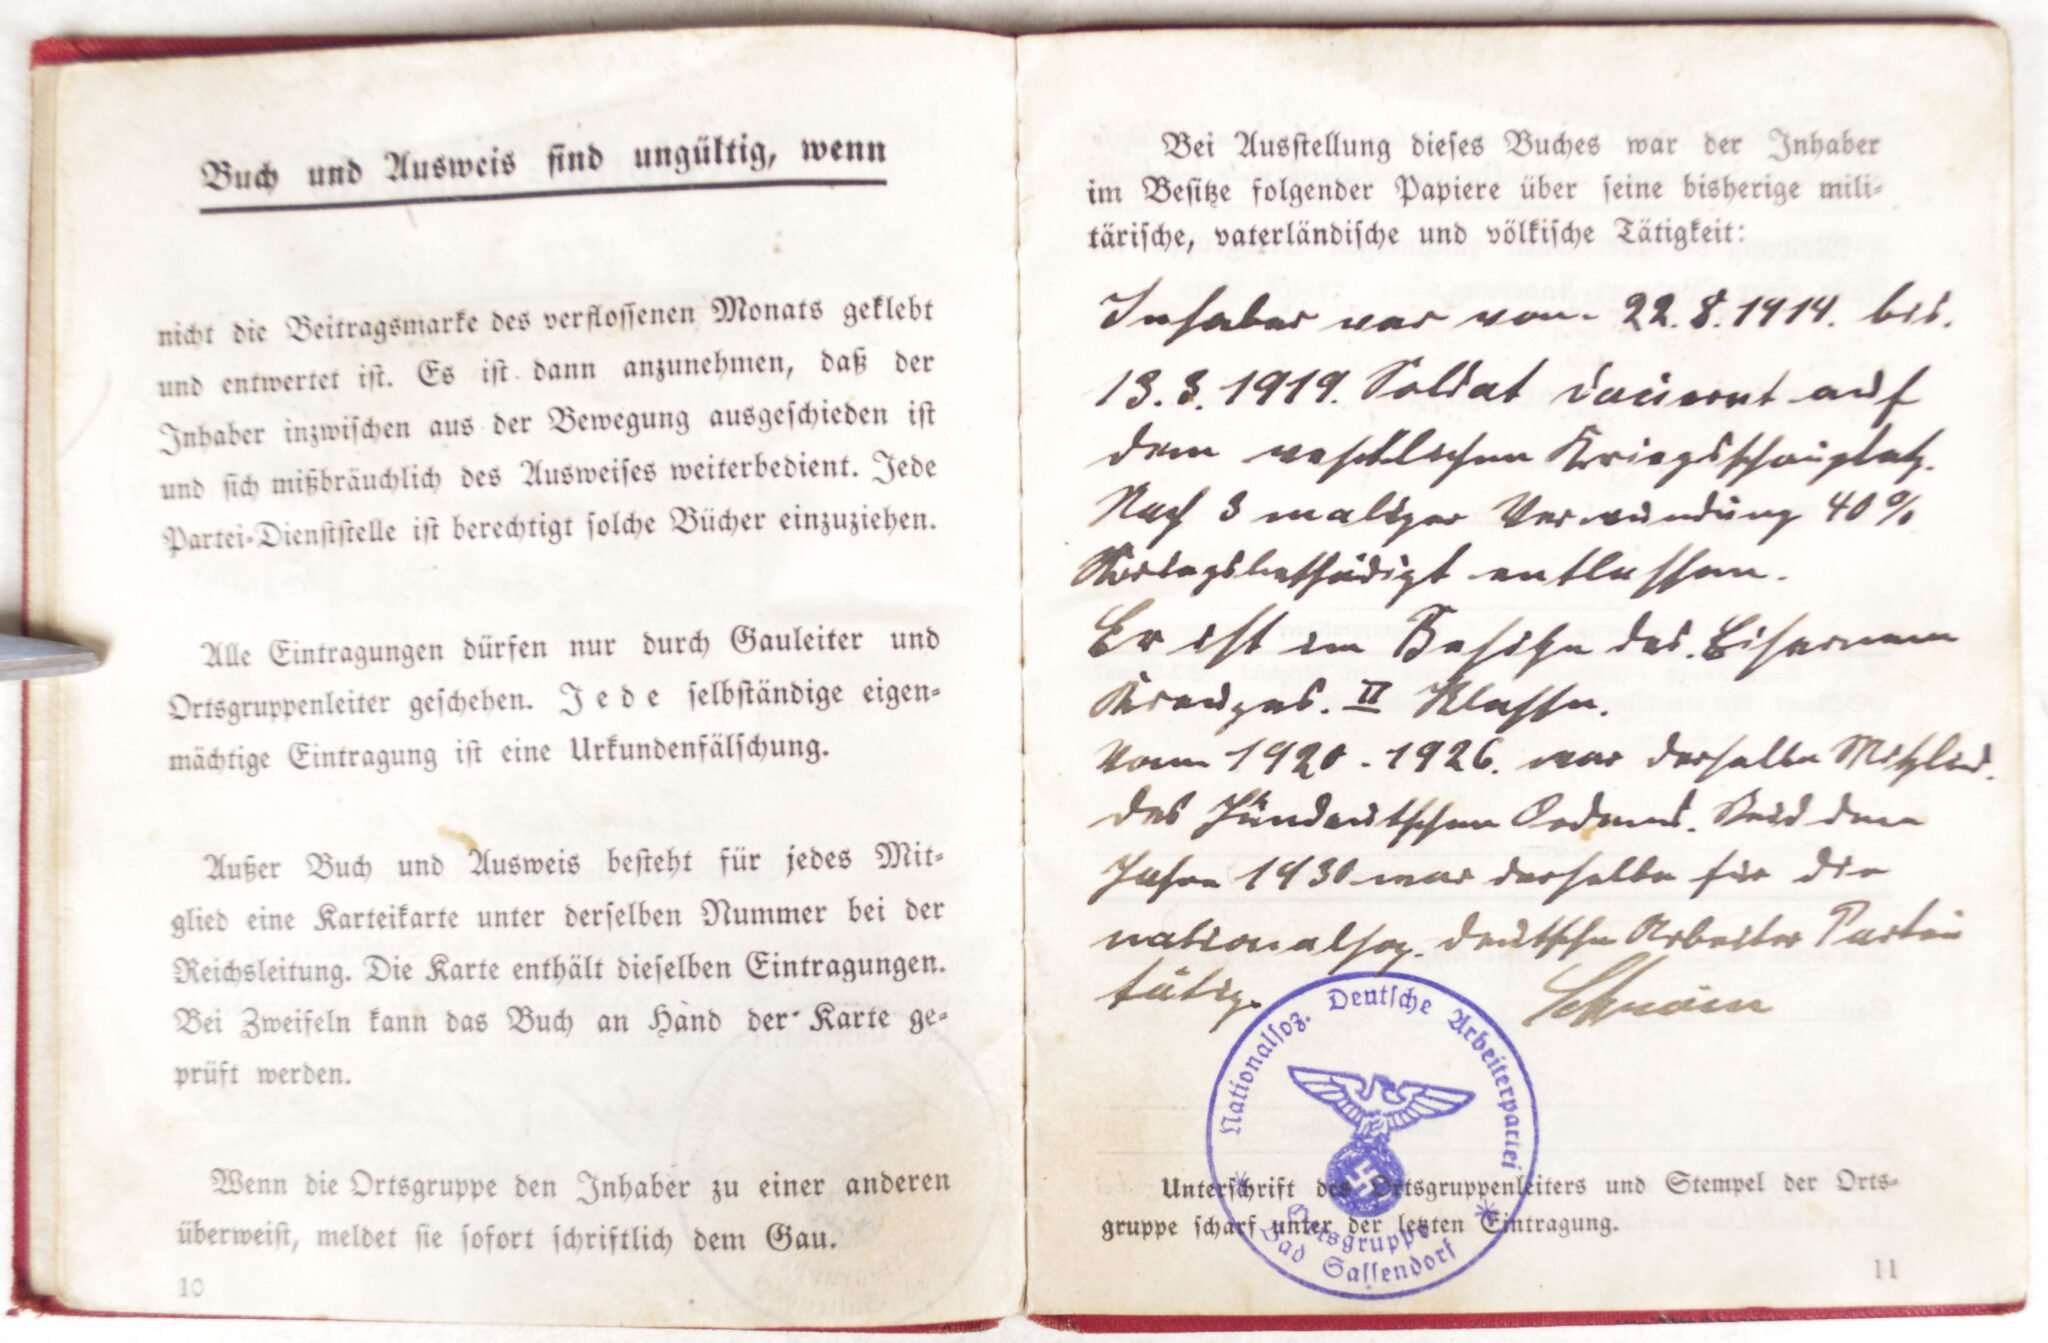 Buch und Ausweis sind ungültig, wenn
nicht die Beitragsmarke des verflossenen Monats geklebt
und entwertet ist. Es ist dann anzunehmen, daß der
Inhaber inzwischen aus der Bewegung ausgeschieden ist
und sich mißbräuchlich des Ausweises weiterbedient. Jede
Partei-Dienststelle ist berechtigt solche Bücher einzuziehen.
Alle Eintragungen dürfen nur durch Gauleiter und
Ortsgruppenleiter geschehen. Jede selbständige eigen-
mächtige Eintragung ist eine Urkundenfälschung.
Außer Buch und Ausweis besteht für jedes Mit-
glied eine Karteikarte unter derselben Nummer bei der
Reichsleitung. Die Karte enthält dieselben Eintragungen.
Bei Zweifeln kann das Buch an Hand der Karte ge-
prüft werden.
Wenn die Ortsgruppe den Inhaber zu einer anderen
überweist, meldet sie sofort schriftlich dem Gau.
10
Bei Ausstellung dieses Buches war der Inhaber
im Besitze folgender Papiere über seine bisherige mili-
tärische, vaterländische und völkische Tätigkeit:
Inhaber war vom 22.8.1914. bis.
13.3.1919. Soldat dauernt auf
dem westlichen Kriegsschauplatz.
Nach 3 maliger Verwundung 40%
Kriegsbeschädigt entlassen.
Er ist im Besitze des Eisernem
Kreuzes. II Klasse.
Vom 1920-1926. war derselbe Mitglied.
des Jungdeutschen Ordens. Seid dem
Jahre 1930 war derselbe für die
nationalsoz. deutsche Arbeiter Partei
tätig.
Nationalsoz. Deutsche Arbeiterpartei
Ortsgruppe
Bad Sassendorf
Unterschrift des Ortsgruppenleiters und Stempel der Orts-
gruppe scharf unter der letzten Eintragung.
11